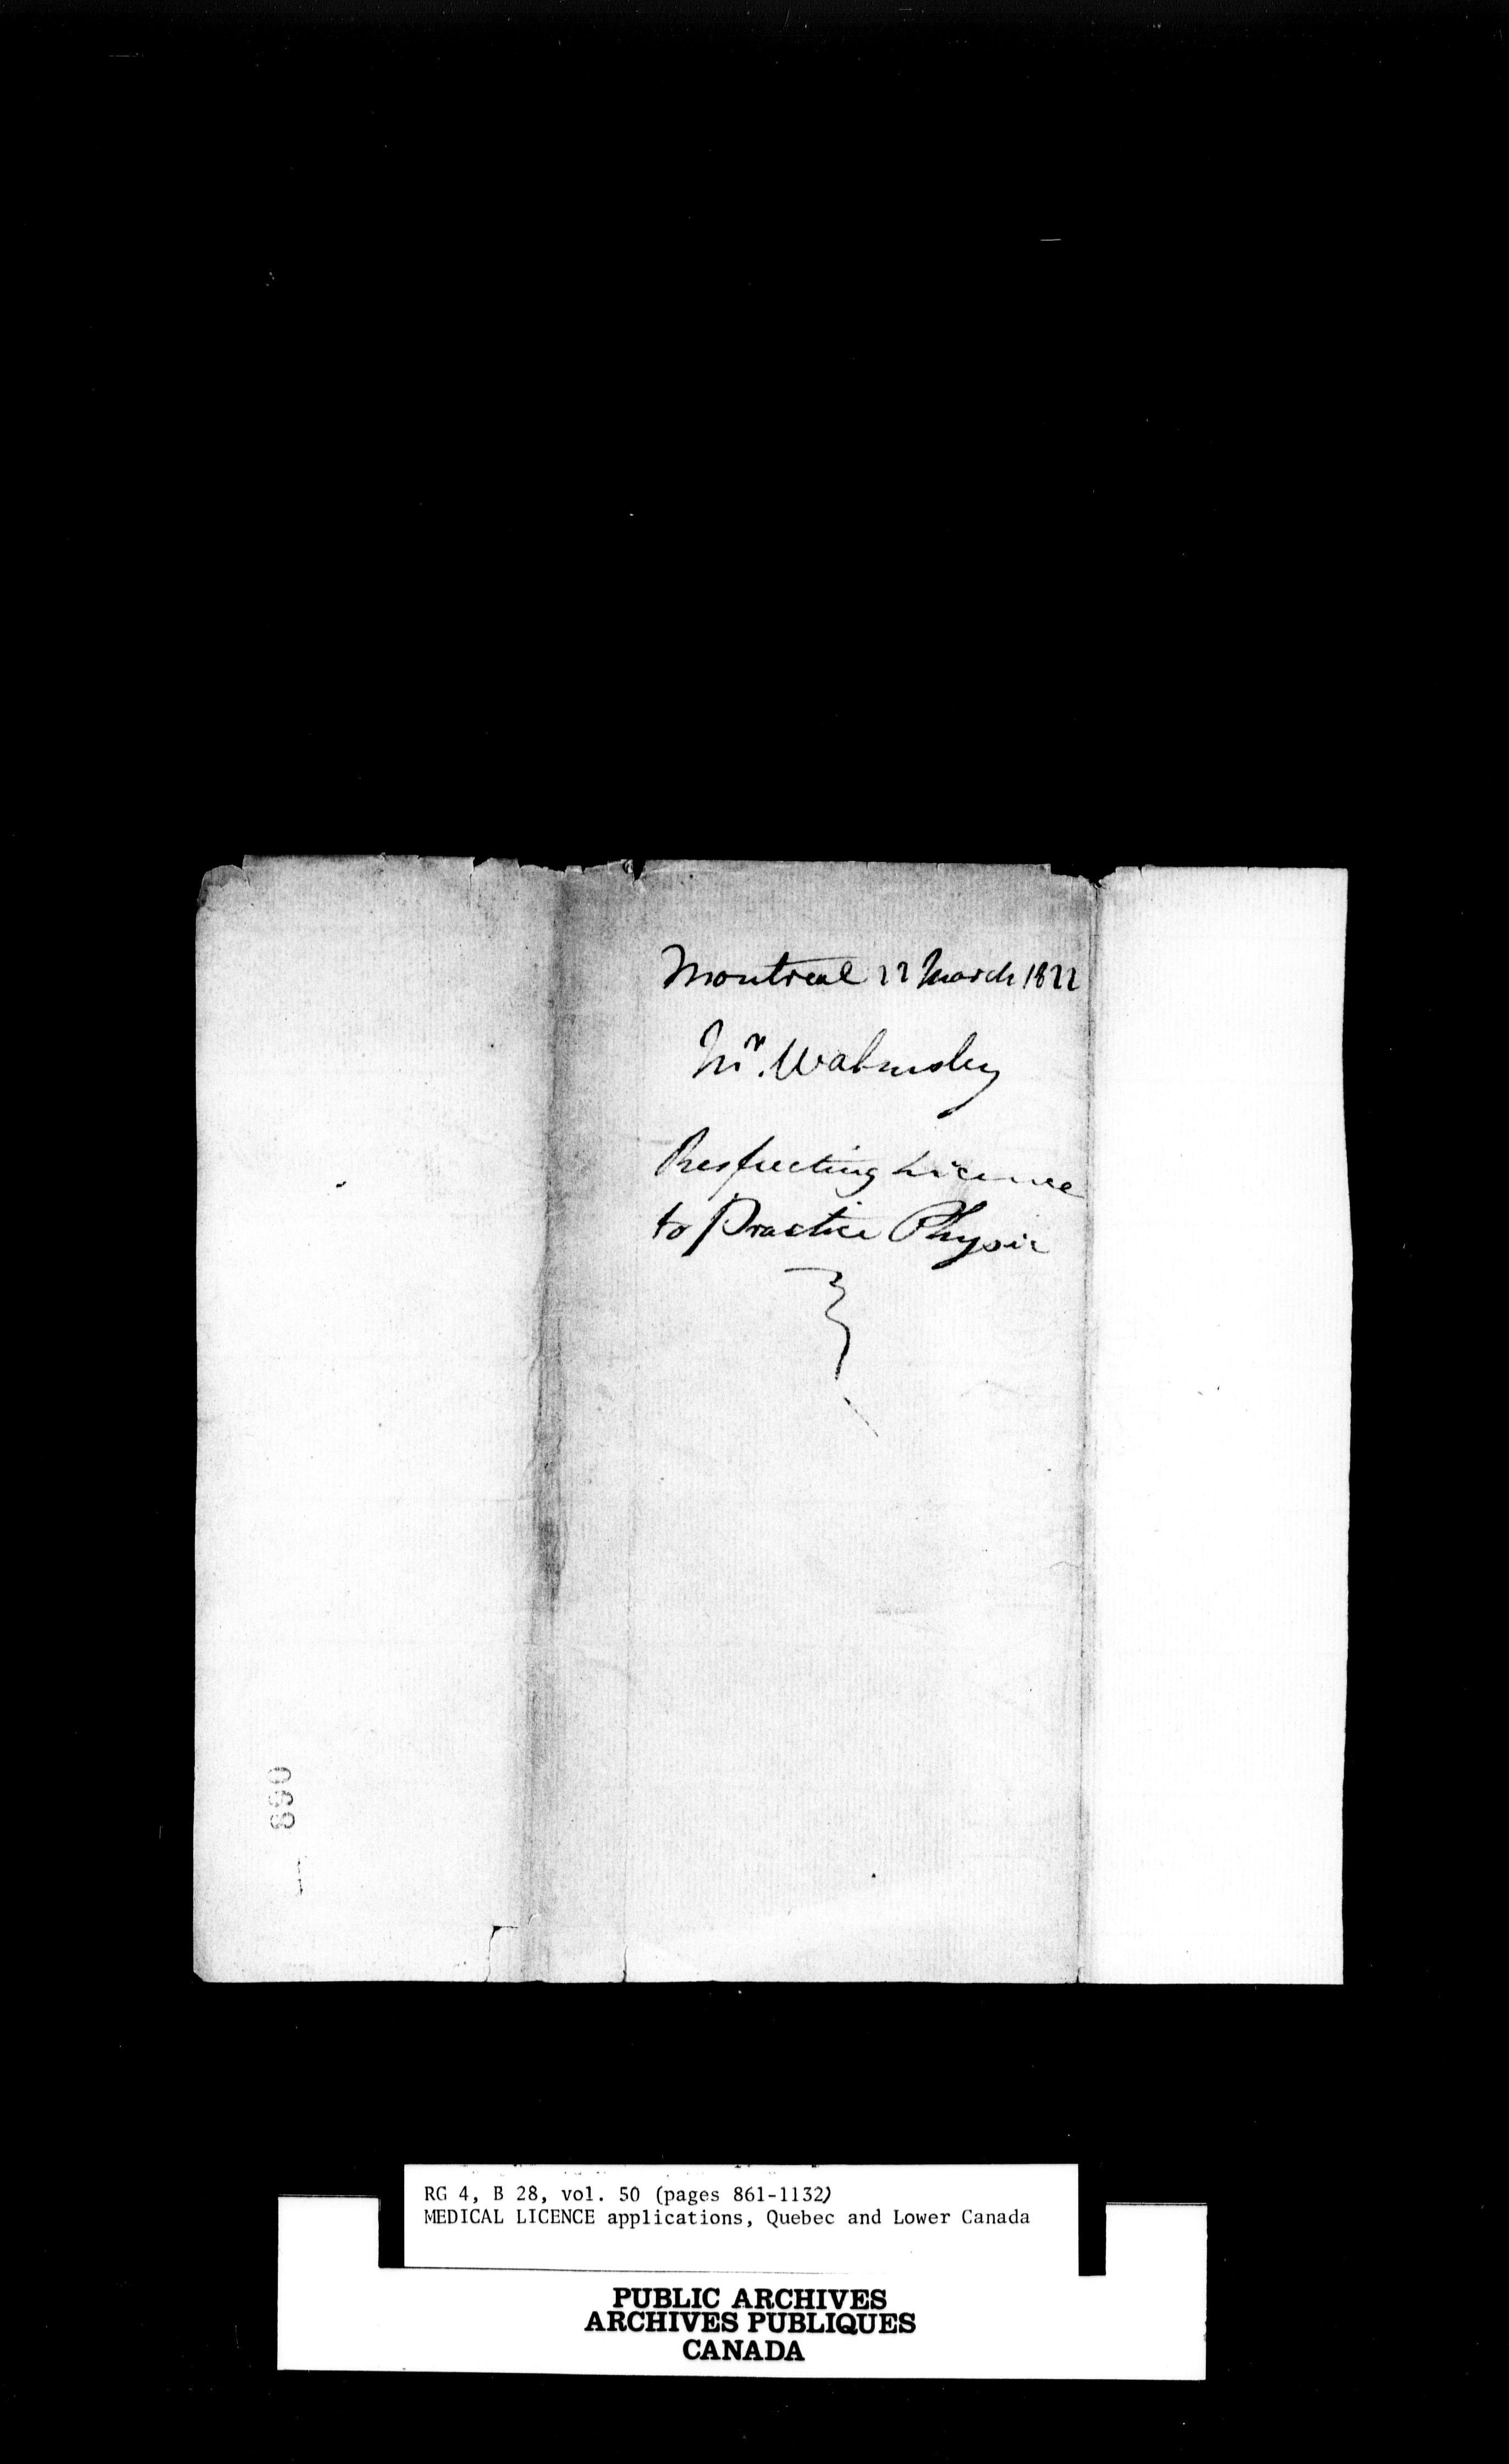 Montreal 22 March 1822
Mr. Walmsley
Respecting Licence
to Practice Physic
890
RG 4, B 28, vol. 50 (pages 861-1132)
MEDICAL LICENCE applications, Quebec and Lower Canada
PUBLIC ARCHIVES
ARCHIVES PUBLIQUES
CANADA